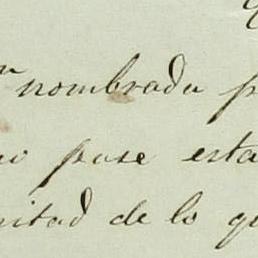 nombrada p
pase esta
mitad de lo qu